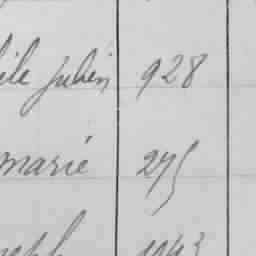 ile Julien 928
marie 275
seph 1043